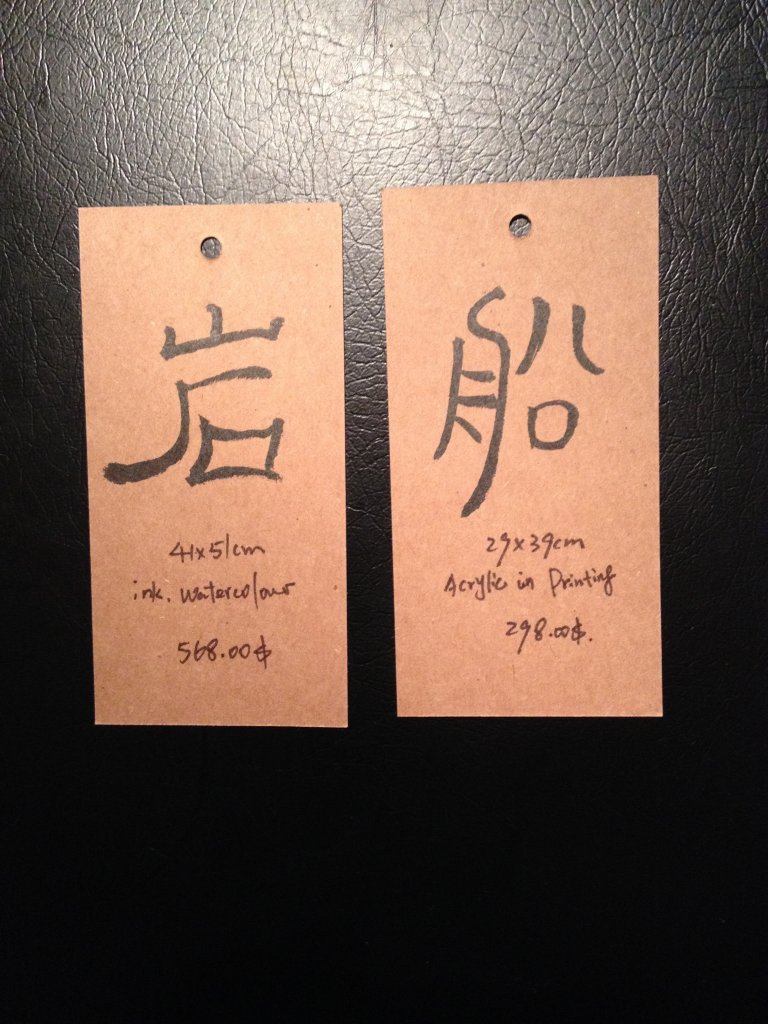 岩
41x51cm
ink. watercolour
568.00$
船
29x39cm
Acrylic in Printing
298.00$.